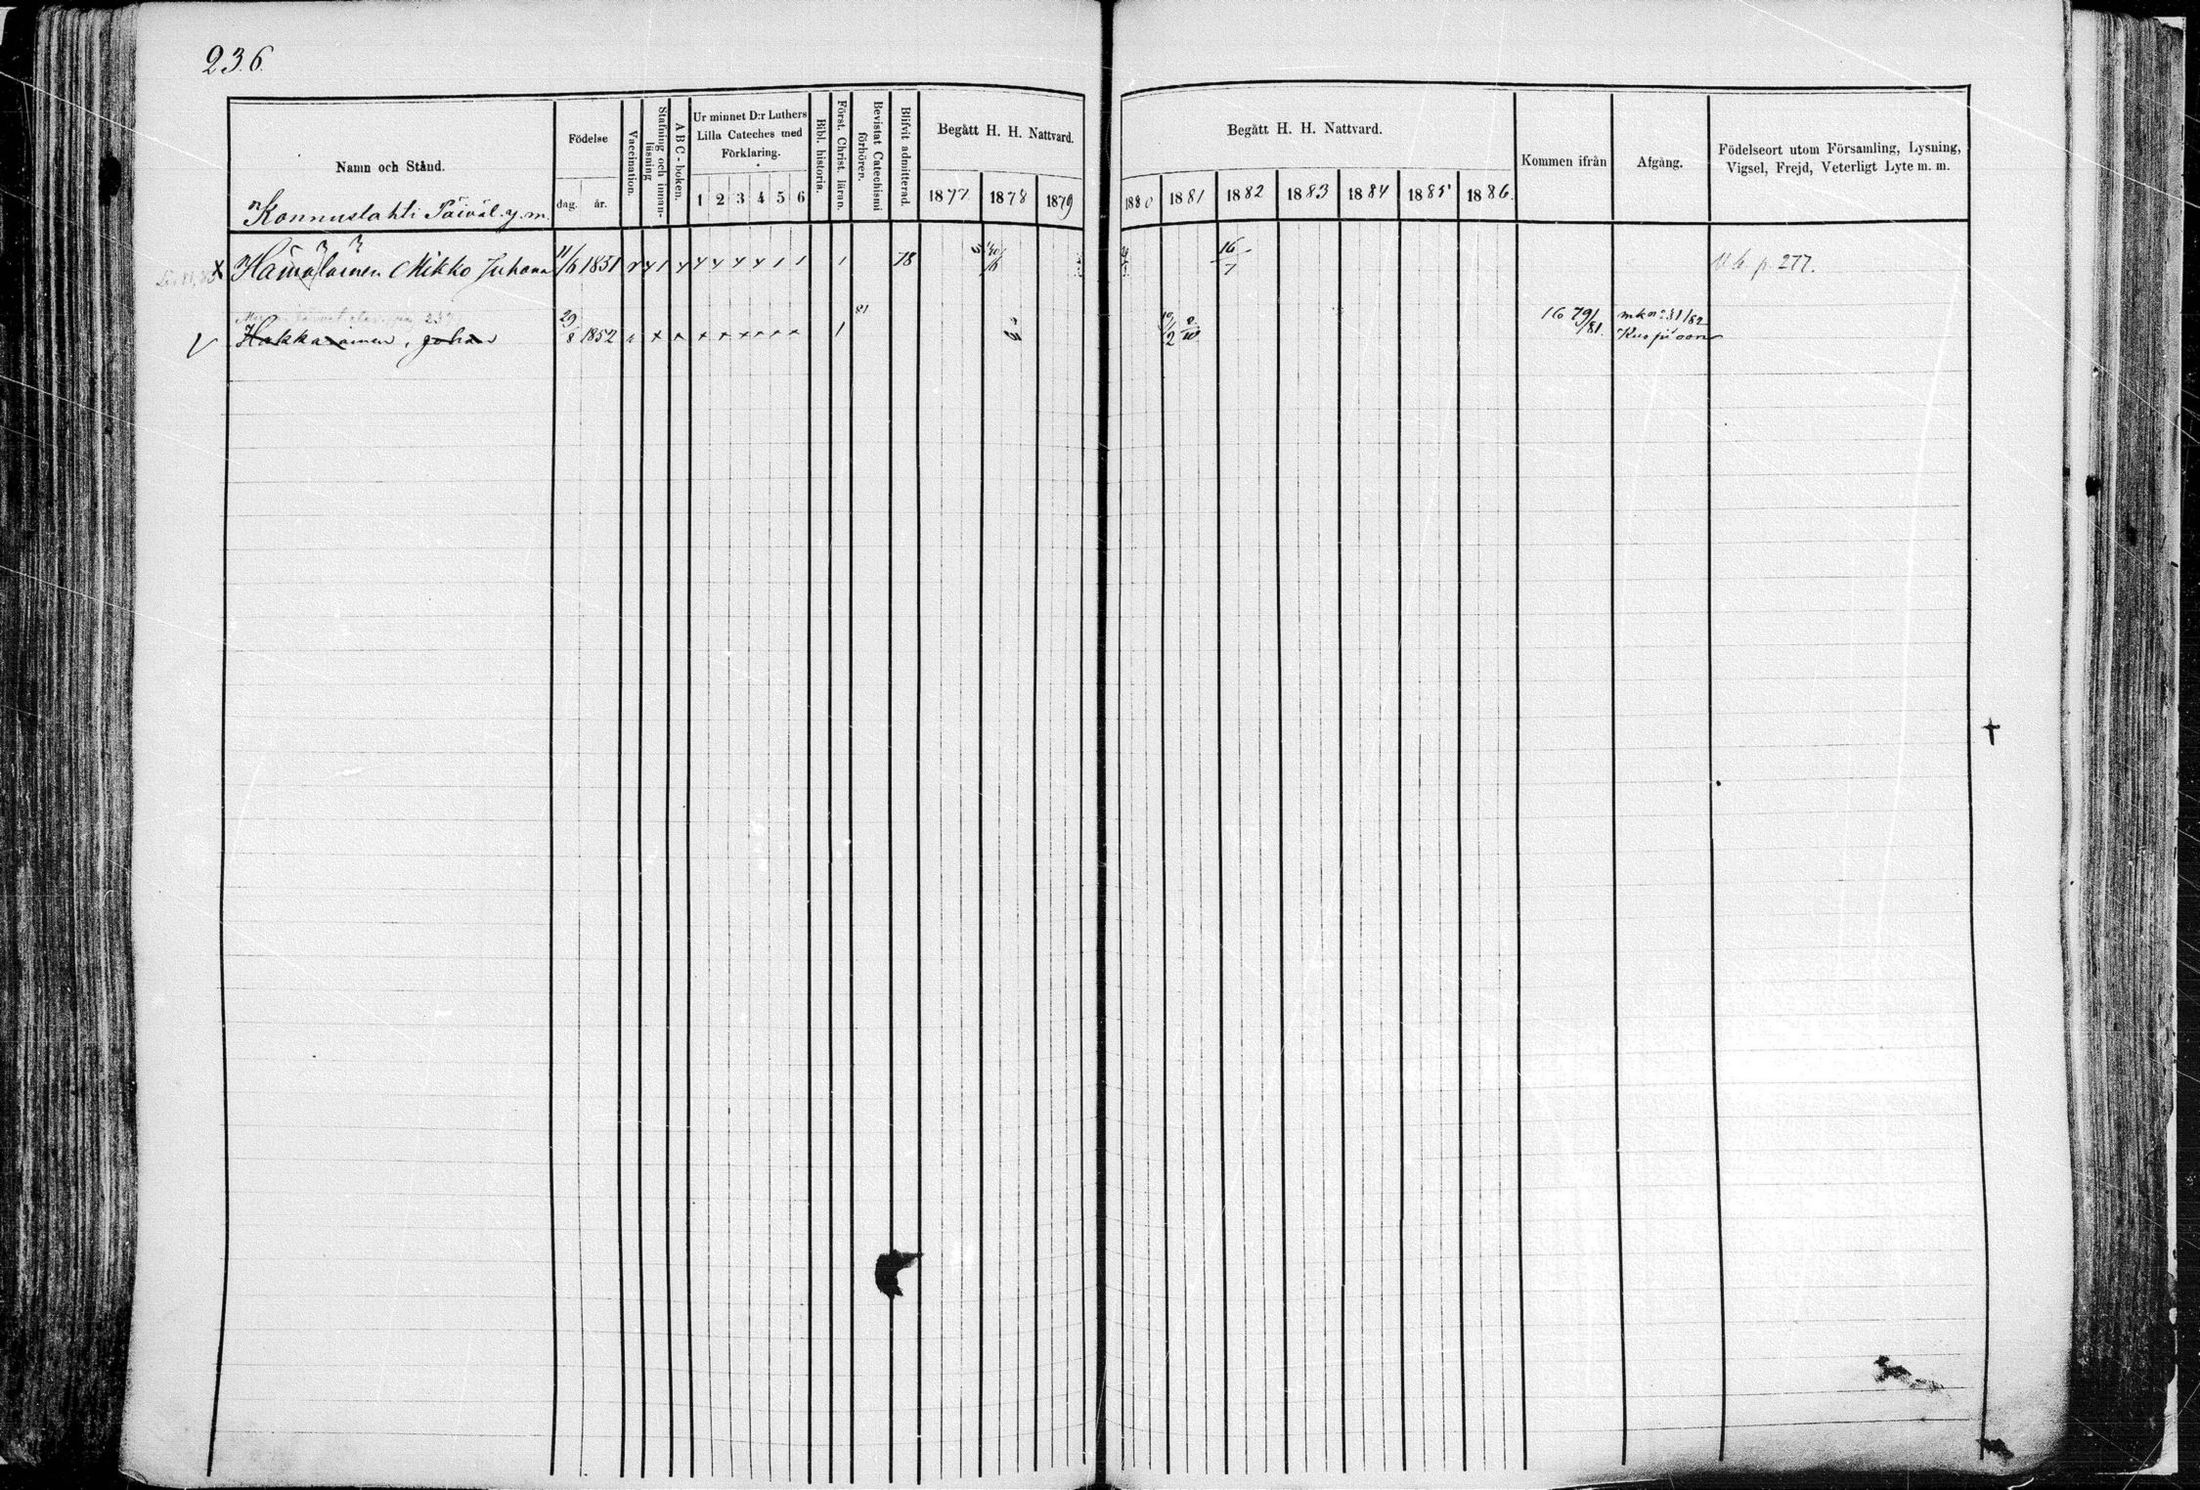 236.
Namn och Stånd.
Födelse
dag. år.
Vaccination.
Stafning och innanläsning
ABC-boken.
Ur minnet D:r Luthers
Lilla Cateches med
Förklaring.
1 2 3 4 5 6
Bibl. historia.
Först. Christ. läran.
Bevistat Catechismi
förhören.
Blifvit admitterad.
Begått H. H. Nattvard.
1877 1878 1879
Begått H. H. Nattvard.
1880 1881 1882 1883 1884 1885 1886.
Kommen ifrån
Afgång.
Födelseort utom Församling, Lysning,
Vigsel, Frejd, Veterligt Lyte m. m.
Konnuslahti Päiväl. y. m.
Hämäläinen Mikko Juhana 11/6 1831 1 78 16/7 p. 277.
Hakkarainen, Johan 29/8 1852 1 81 16 79/81. 31/82
Kuopioon